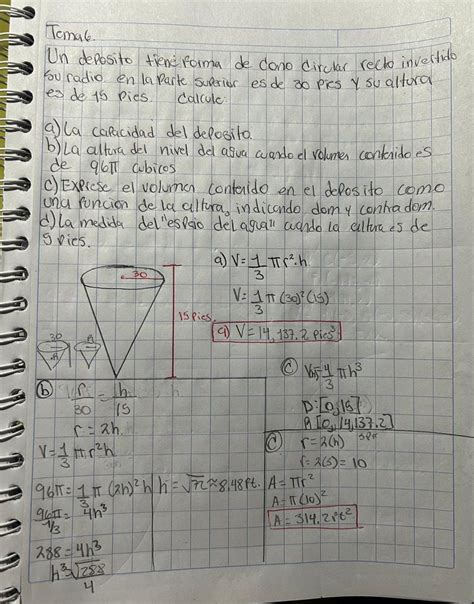 Tema 6.
Un deposito tiene forma de cono circular recto invertido
su radio en la parte superior es de 30 pies y su altura
es de 15 pies. Calcule
a) La capacidad del deposito
b) La altura del nivel del agua cuando el volumen contenido es
de 96π cubicos
c) Exprese el volumen contenido en el deposito como
una funcion de la altura, indicando dom y contradom.
d) La medida del "espejo del agua" cuando la altura es de
5 pies.
30
15 pies.
a) V = 1/3 πr²·h
V = 1/3 π(30)²(15)
a) V = 14,137.2 pies³
30
b) r/30 = h/15
r = 2h
V = 1/3 π r²h
96π = 1/3 π (2h)² h
96π/1/3 = 4h³
288 = 4h³
h³ = √288/4
h = √72 ≈ 8.48 ft.
c) = 4/3 πh³
D: [0,15]
R [0,14,137.2]
d) r = 2(h)
r = 2(5) = 10
A = πr²
A = π(10)²
A = 314.2 ft²